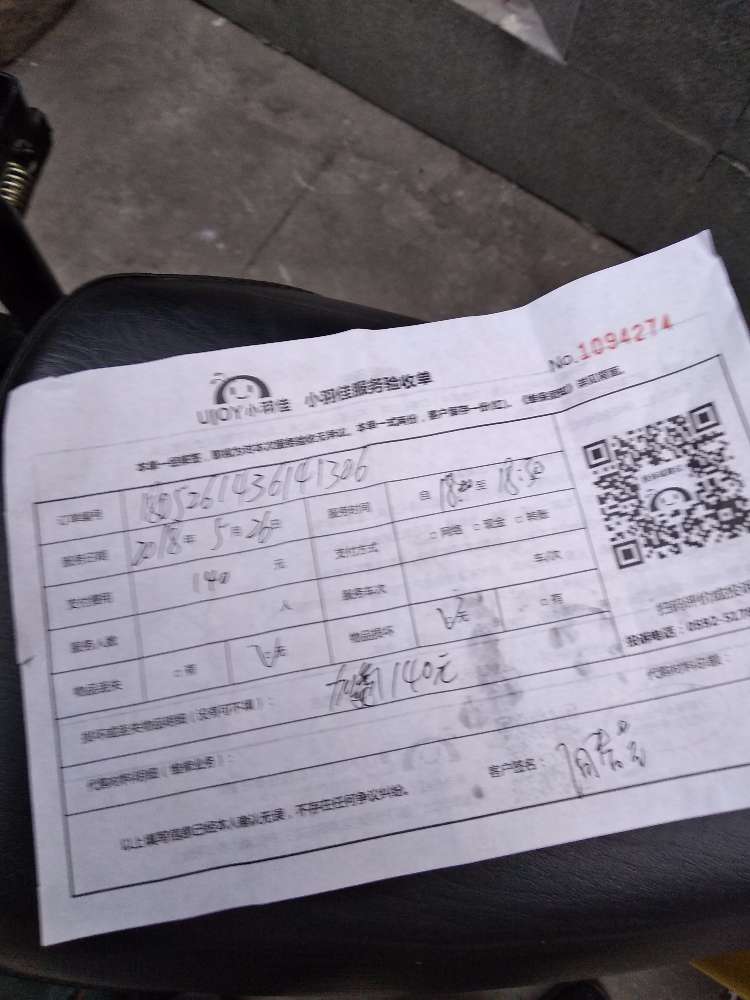 No.1094274
UJOY小羽佳 小羽佳服务验收单
本单一经签署，即视为对本次服务验收无异议。本单一式两份，客户保存一份
订单编号
服务日期 2018年 5月26日 服务时间 自 至
支付费用 140 元 支付方式 □网络 □现金 □转账
服务人数 人 服务车次 车/次
物品丢失 □有 □无 物品损坏 □无 □有
损坏或丢失物品明细（没有可不填）： 140元
代购材料明细（维修业务）： 代购材料总额：
以上填写信息已经本人确认无误，不存在任何争议纠纷。 客户签名：
扫码评价或投诉
投诉电话：0592-5178